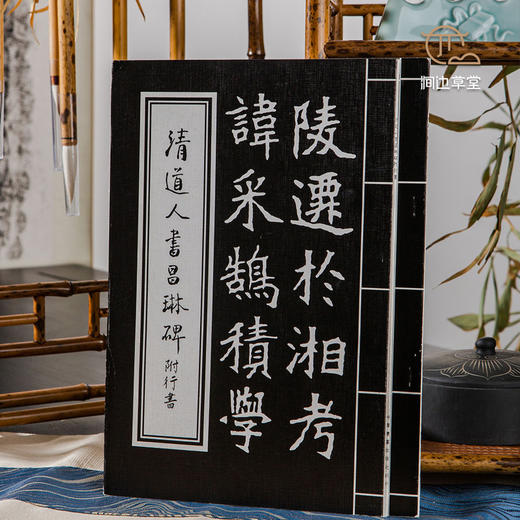 陵遷於湘考
諱采鵠積學
清道人書昌琳碑 附行書
涧边草堂